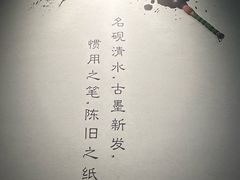 名砚清水·古墨新发·
惯用之笔·陈旧之纸